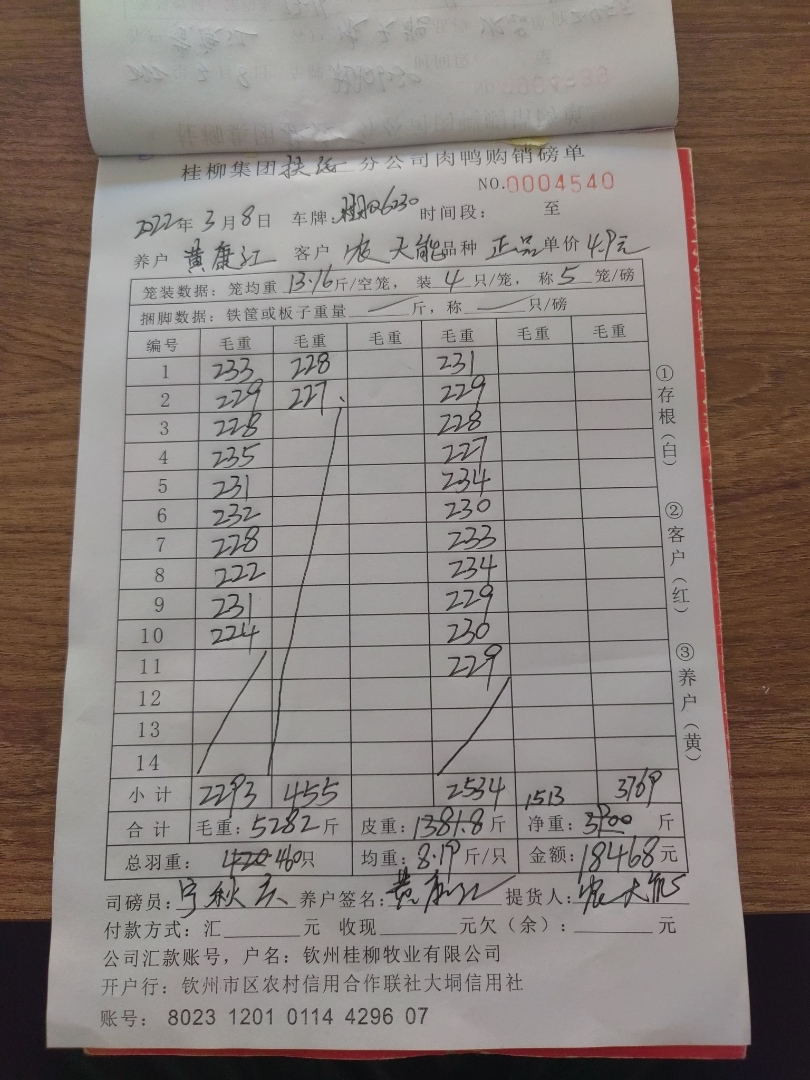 桂柳集团扶绥分公司肉鸭购销磅单
NO.0004540
2022年3月8日 车牌: 时间段: 至
养户 黄康江 客户 农天能 品种 正品 单价 4.9元
笼装数据: 笼均重 13.16斤/空笼, 装 4 只/笼, 称 5 笼/磅
捆脚数据: 铁筐或板子重量 斤, 称 只/磅
编号 毛重 毛重 毛重 毛重 毛重 毛重
1 233 228 231
2 229 227 229
3 228 228
4 235 227
5 231 234
6 232 230
7 228 233
8 222 234
9 231 229
10 224 230
11 229
12
13
14
小计 2293 455 2534 1513 3769
合计 毛重: 5282斤 皮重: 1381.8斤 净重: 3900斤
总羽重: 460只 均重: 8.19斤/只 金额: 18468元
司磅员: 宁秋 养户签名: 黄康江 提货人: 农天能
付款方式: 汇 元 收现 元欠(余): 元
公司汇款账号, 户名: 钦州桂柳牧业有限公司
开户行: 钦州市区农村信用合作联社大垌信用社
账号: 8023 1201 0114 4296 07
①存根(白)
②客户(红)
③养户(黄)